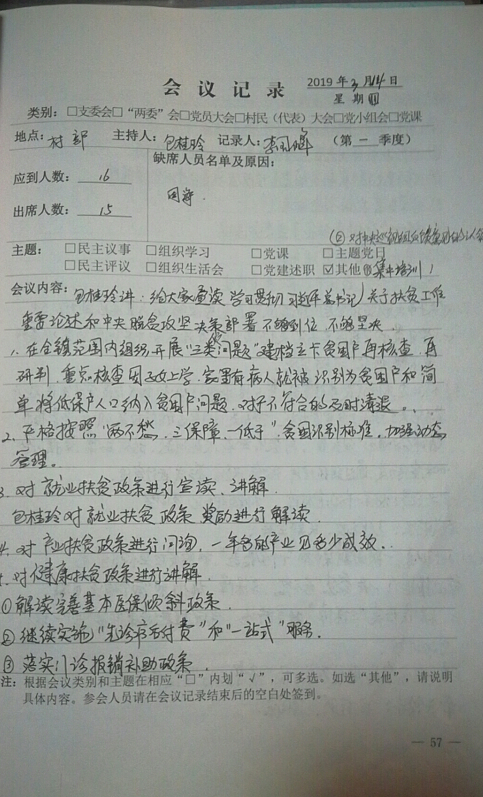 会议记录 2019年3月14日
星期四
类别：□支委会□“两委”会□党员大会□村民（代表）大会□党小组会□党课
地点：村部 主持人：包桂玲 记录人：李 （第一季度）
应到人数：16 缺席人员名单及原因：
出席人数：15
主题：□民主议事 □组织学习 □党课 □主题党日
□民主评议 □组织生活会 □党建述职 ☑其他（集中培训）
会议内容：包桂玲讲：给大家宣读学习贯彻习近平总书记关于扶贫工作
重要论述和中央脱贫攻坚决策部署不够到位 不够坚决
1、在全镇范围内组织开展“三类问题”建档立卡贫困户再核查、再
研判，重点核查因子女上学、家里有病人就被识别为贫困户和简
单将低保户人口纳入贫困户问题，对于不符合的及时清退。
2、严格按照“两不愁、三保障、一低于”贫困识别标准，加强动态
管理。
3、对就业扶贫政策进行宣读、讲解
包桂玲对就业扶贫政策 奖励进行解读
4、对产业扶贫政策进行问询，一年各的产业见多少成效。
对健康扶贫政策进行讲解
①解读完善基本医保倾斜政策
②继续实施“先诊疗后付费”和“一站式”服务
③落实门诊报销补助政策
注：根据会议类别和主题在相应“□”内划“√”，可多选。如选“其他”，请说明
具体内容。参会人员请在会议记录结束后的空白处签到。
— 57 —